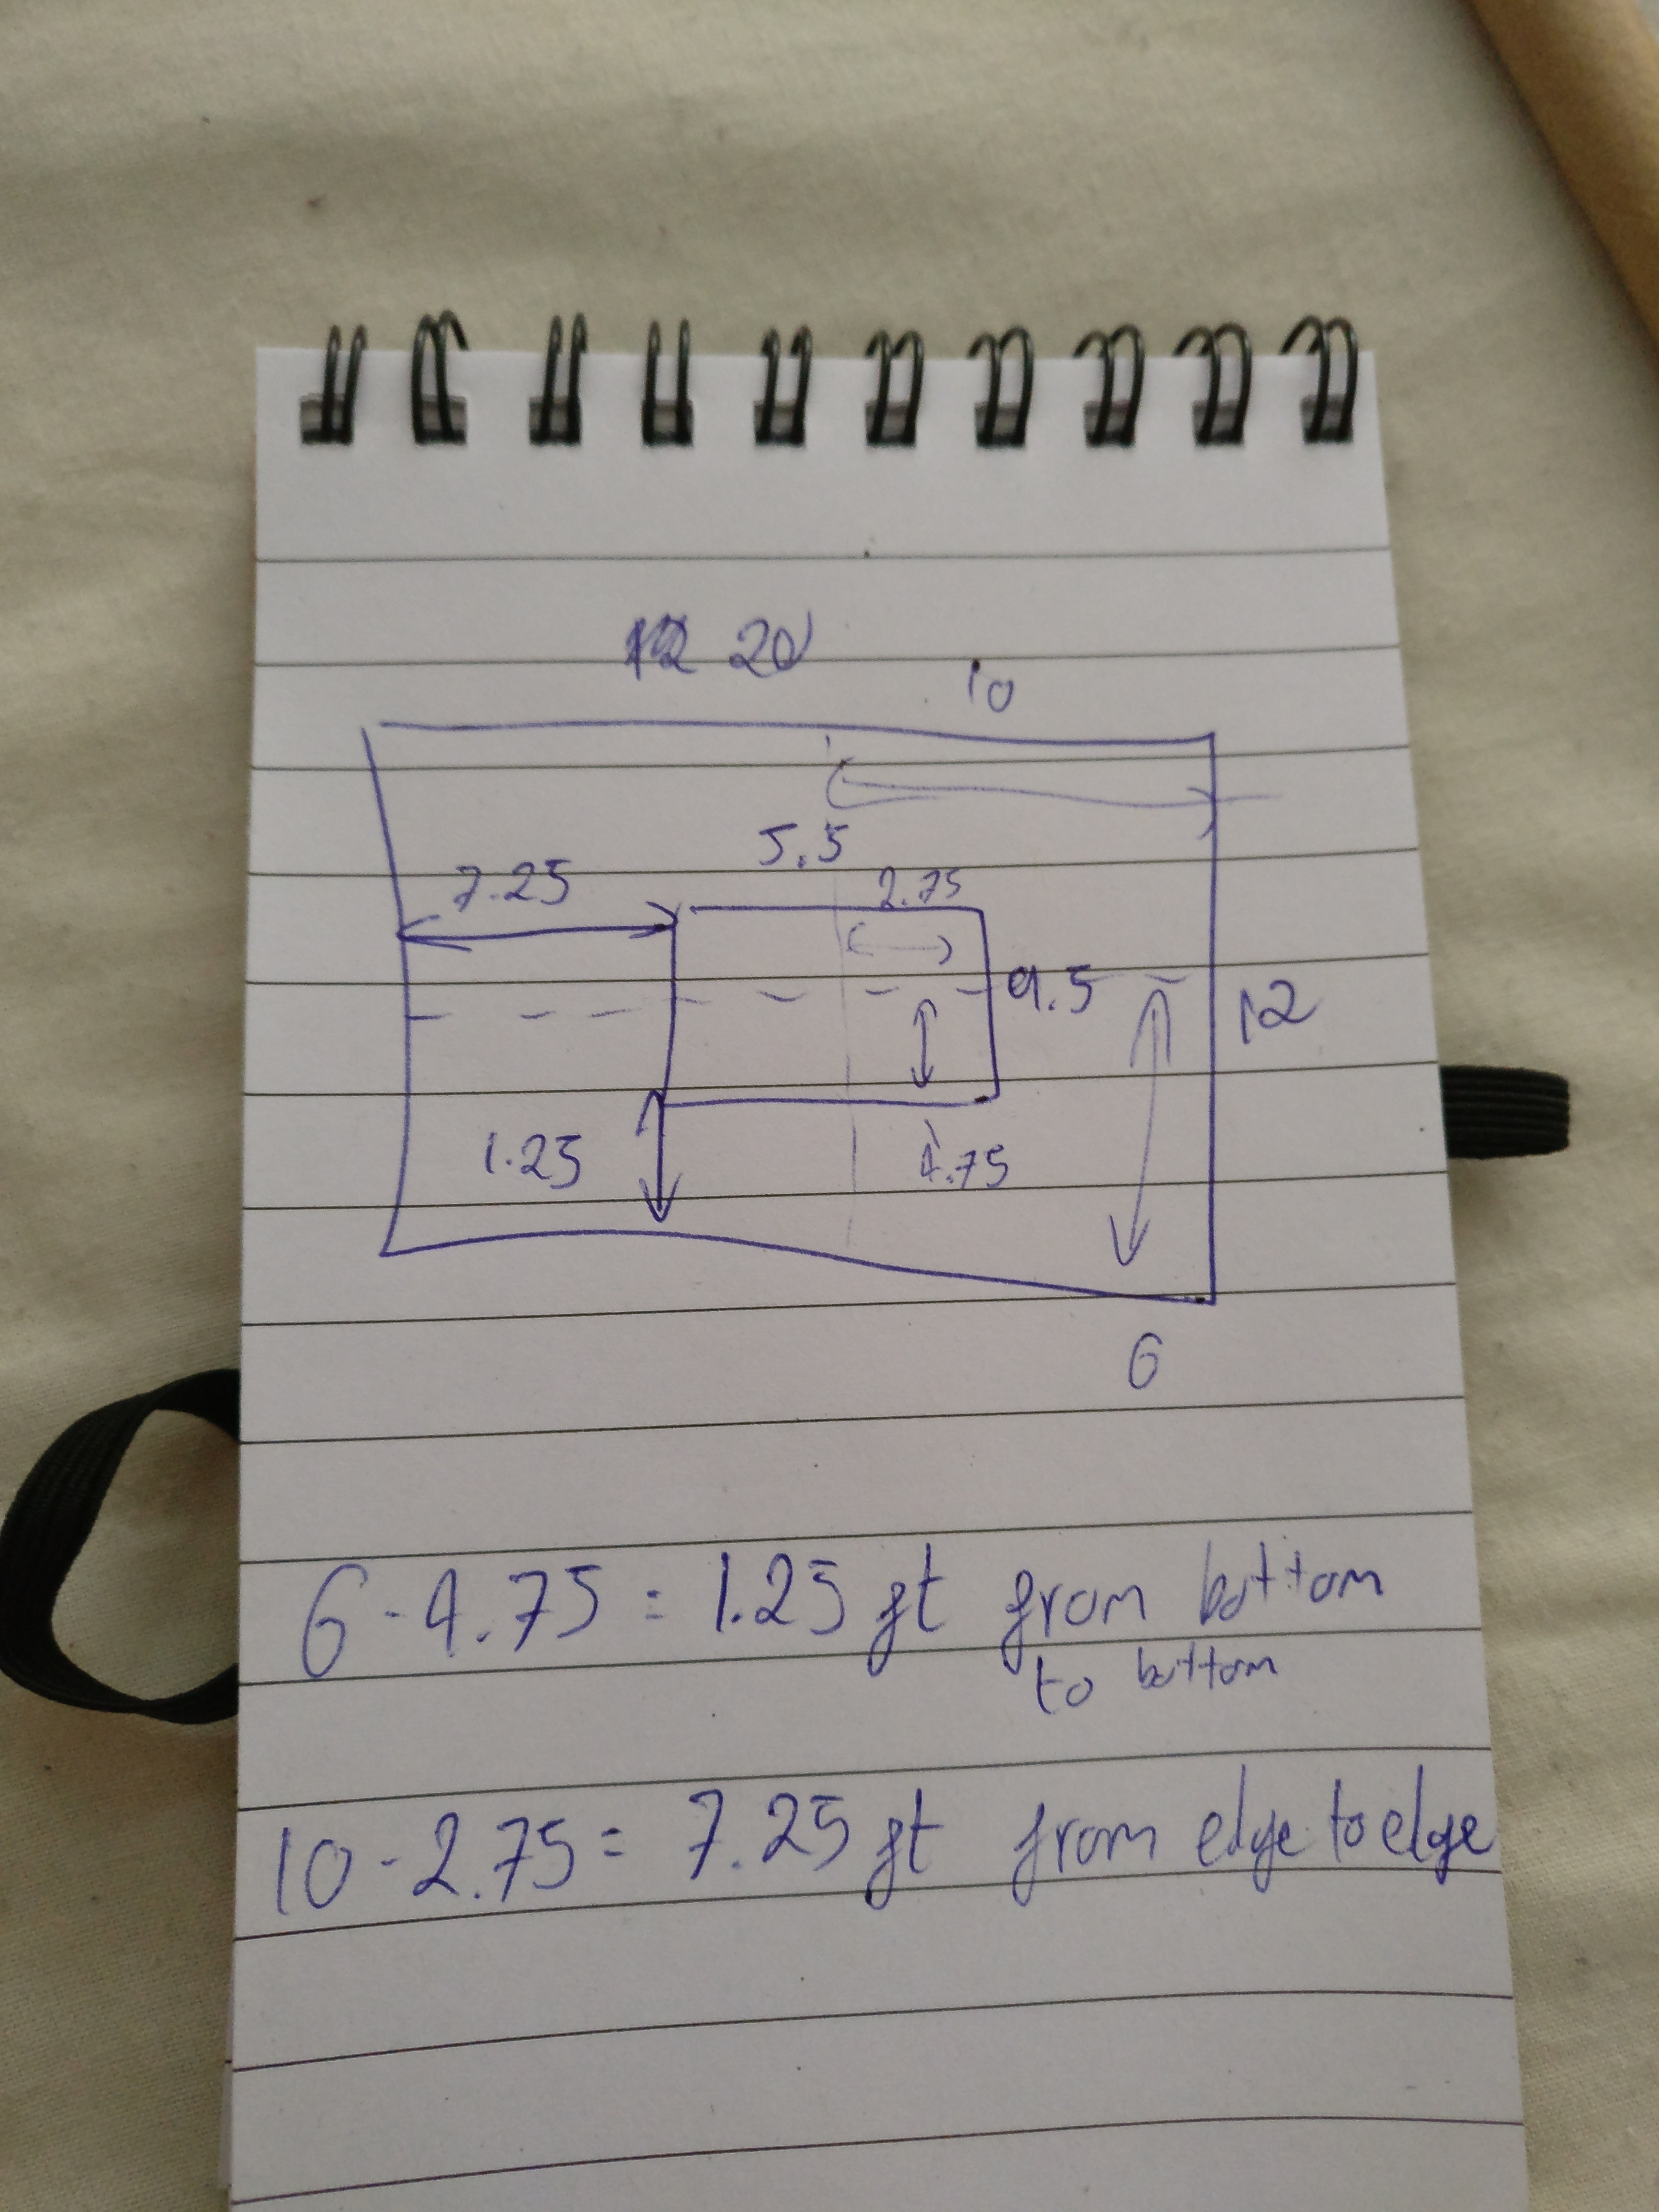 20
10
5.5
7.25
2.75
9.5
12
1.25
4.75
6
6-4.75 = 1.25 ft from bottom
to bottom
10-2.75 = 7.25 ft from edge to edge